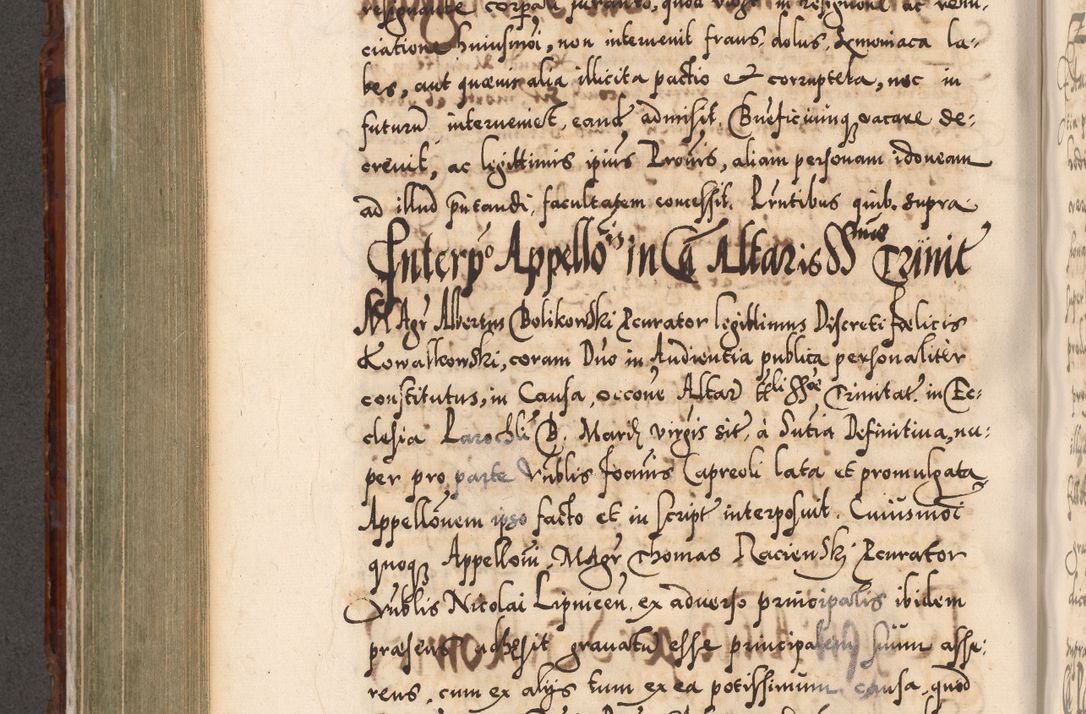 resignante corporali juranto, quod vigore in resignatione ac renun-
ciatione huiusmõi, non intervenit fraus, dolus, simoniaca la-
bes, aut quævis alia illicita pactio et corruptela, nec in
futurũ interveniet, eand admisit. Bñeficiumq vacare de-
crevit, ac legittimis ipius Provis, aliam personam idoneam
ad illud pñtandi, facultatem concessit. Pñtibus quib. supra.
Interpo Appellõis in Cã Altaris SSmæ Trinit
MAgr Albertus Bolikowski Pcurator legittimus Discreti Fœlicis
Kowalkowski, coram Dño in Audientia publica personaliter
constitutus, in Causa, occõne Altar ttli SSæ Trinitat. in Ec-
clesia Parochli B. Mariæ virgis sit, à Sñtia Definitiva, nu-
per pro parte Nublis Joannis Capreoli lata et promulgata
Appellõnem ipso facto et in script interposuit. Cuiusmõi
quoq Appellõni, MAgr Thomas Racienski Pcurator
Nublis Nicolai Lipnicen, ex adverso principalis ibidem
præsens adhæsit gravatũ esse principalem suum asse-
rens, cum ex alijs tum ex ea potissimum causa, quod